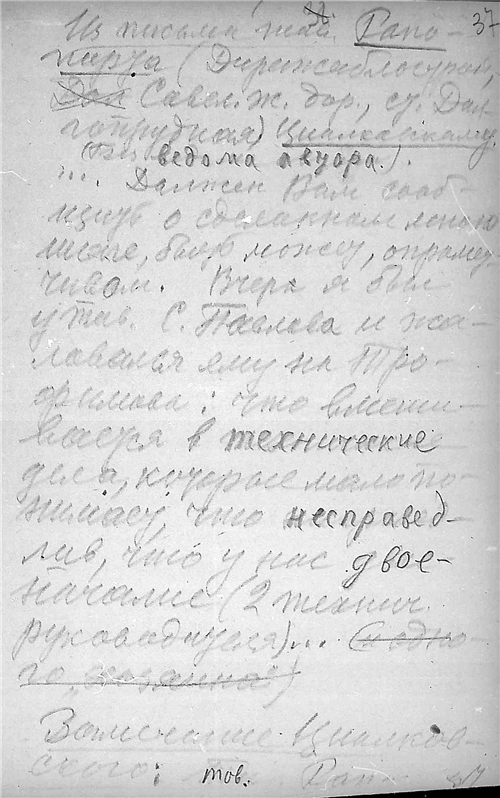 37
Из письма тов. Рапо-
порта (Дирижаблестрой,
Дол Савел. ж. дор., ст. Дол-
гопрудная) Циолковскому
(Без ведома автора.).
... Должен Вам сооб-
щить о сделанном мною
шаге, быть может, опромет
чивом. Вчера я был
у тов. С. Павлова и жа-
ловался ему на Тро-
фимова: что вмеши-
вается в технические
дела, которые мало по-
нимает, что несправед-
лив, что у нас двое-
началие (2 технич.
руководителя)... (и одно-
го „хозяина“)
Замечание Циолков-
ского: тов. Рапо